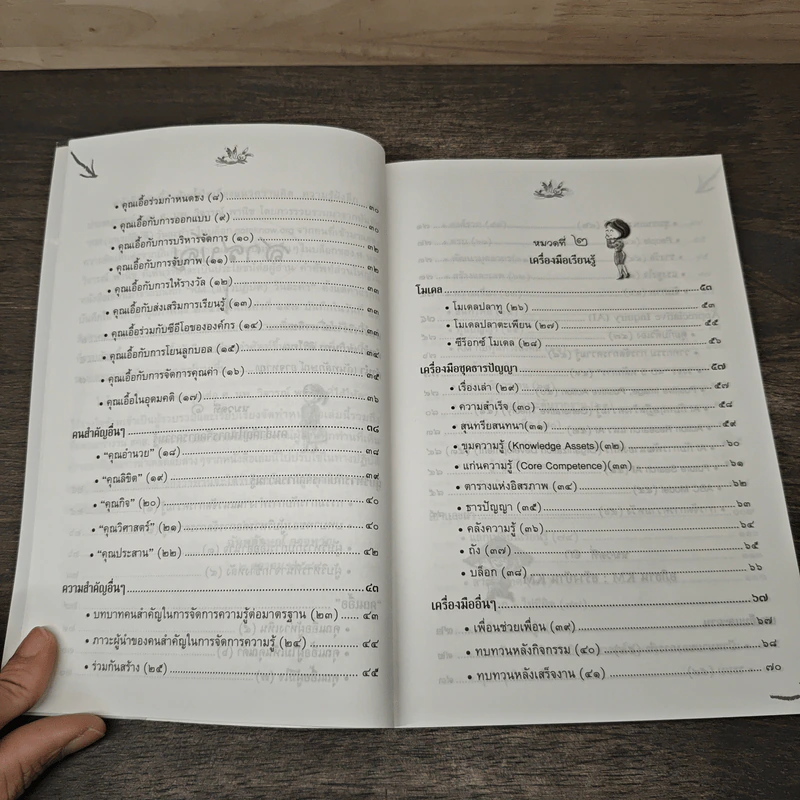 • คุณเอื้อร่วมกำหนดธง (๘) ๓๐
• คุณเอื้อกับการออกแบบ (๙) ๓๐
• คุณเอื้อกับการบริหารจัดการ (๑๐) ๓๒
• คุณเอื้อกับการจับภาพ (๑๑) ๓๒
• คุณเอื้อกับการให้รางวัล (๑๒) ๓๒
• คุณเอื้อกับส่งเสริมการเรียนรู้ (๑๓) ๓๓
• คุณเอื้อร่วมกับซีอีโอขององค์กร (๑๔) ๓๔
• คุณเอื้อกับการโยนลูกบอล (๑๕) ๓๔
• คุณเอื้อกับการจัดการคุณค่า (๑๖) ๓๕
• คุณเอื้อในอุดมคติ (๑๗) ๓๖
คนสำคัญอื่นๆ ๓๘
• “คุณอำนวย” (๑๘) ๓๘
• “คุณลิขิต” (๑๙) ๓๙
• “คุณกิจ” (๒๐) ๔๐
• “คุณวิศาสตร์” (๒๑) ๔๐
• “คุณประสาน” (๒๒) ๔๒
ความสำคัญอื่นๆ ๔๓
• บทบาทคนสำคัญในการจัดการความรู้ต่อมาตรฐาน (๒๓) ๔๓
• ภาวะผู้นำของคนสำคัญในการจัดการความรู้ (๒๔) ๔๔
• ร่วมกันสร้าง (๒๕) ๔๕
หมวดที่ ๒
เครื่องมือเรียนรู้
โมเดล ๕๓
• โมเดลปลาทู (๒๖) ๕๓
• โมเดลปลาตะเพียน (๒๗) ๕๕
• ซีร็อกซ์ โมเดล (๒๘) ๕๖
เครื่องมือชุดธารปัญญา ๕๗
• เรื่องเล่า (๒๙) ๕๗
• ความสำเร็จ (๓๐) ๕๘
• สุนทรียสนทนา(๓๑) ๕๙
• ขุมความรู้ (Knowledge Assets)(๓๒) ๖๐
• แก่นความรู้ (Core Competence)(๓๓) ๖๑
• ตารางแห่งอิสรภาพ (๓๔) ๖๒
• ธารปัญญา (๓๕) ๖๓
• คลังความรู้ (๓๖) ๖๔
• ถัง (๓๗) ๖๕
• บล็อก (๓๘) ๖๖
เครื่องมืออื่นๆ ๖๗
• เพื่อนช่วยเพื่อน (๓๙) ๖๗
• ทบทวนหลังกิจกรรม (๔๐) ๖๘
• ทบทวนหลังเสร็จงาน (๔๑) ๗๐